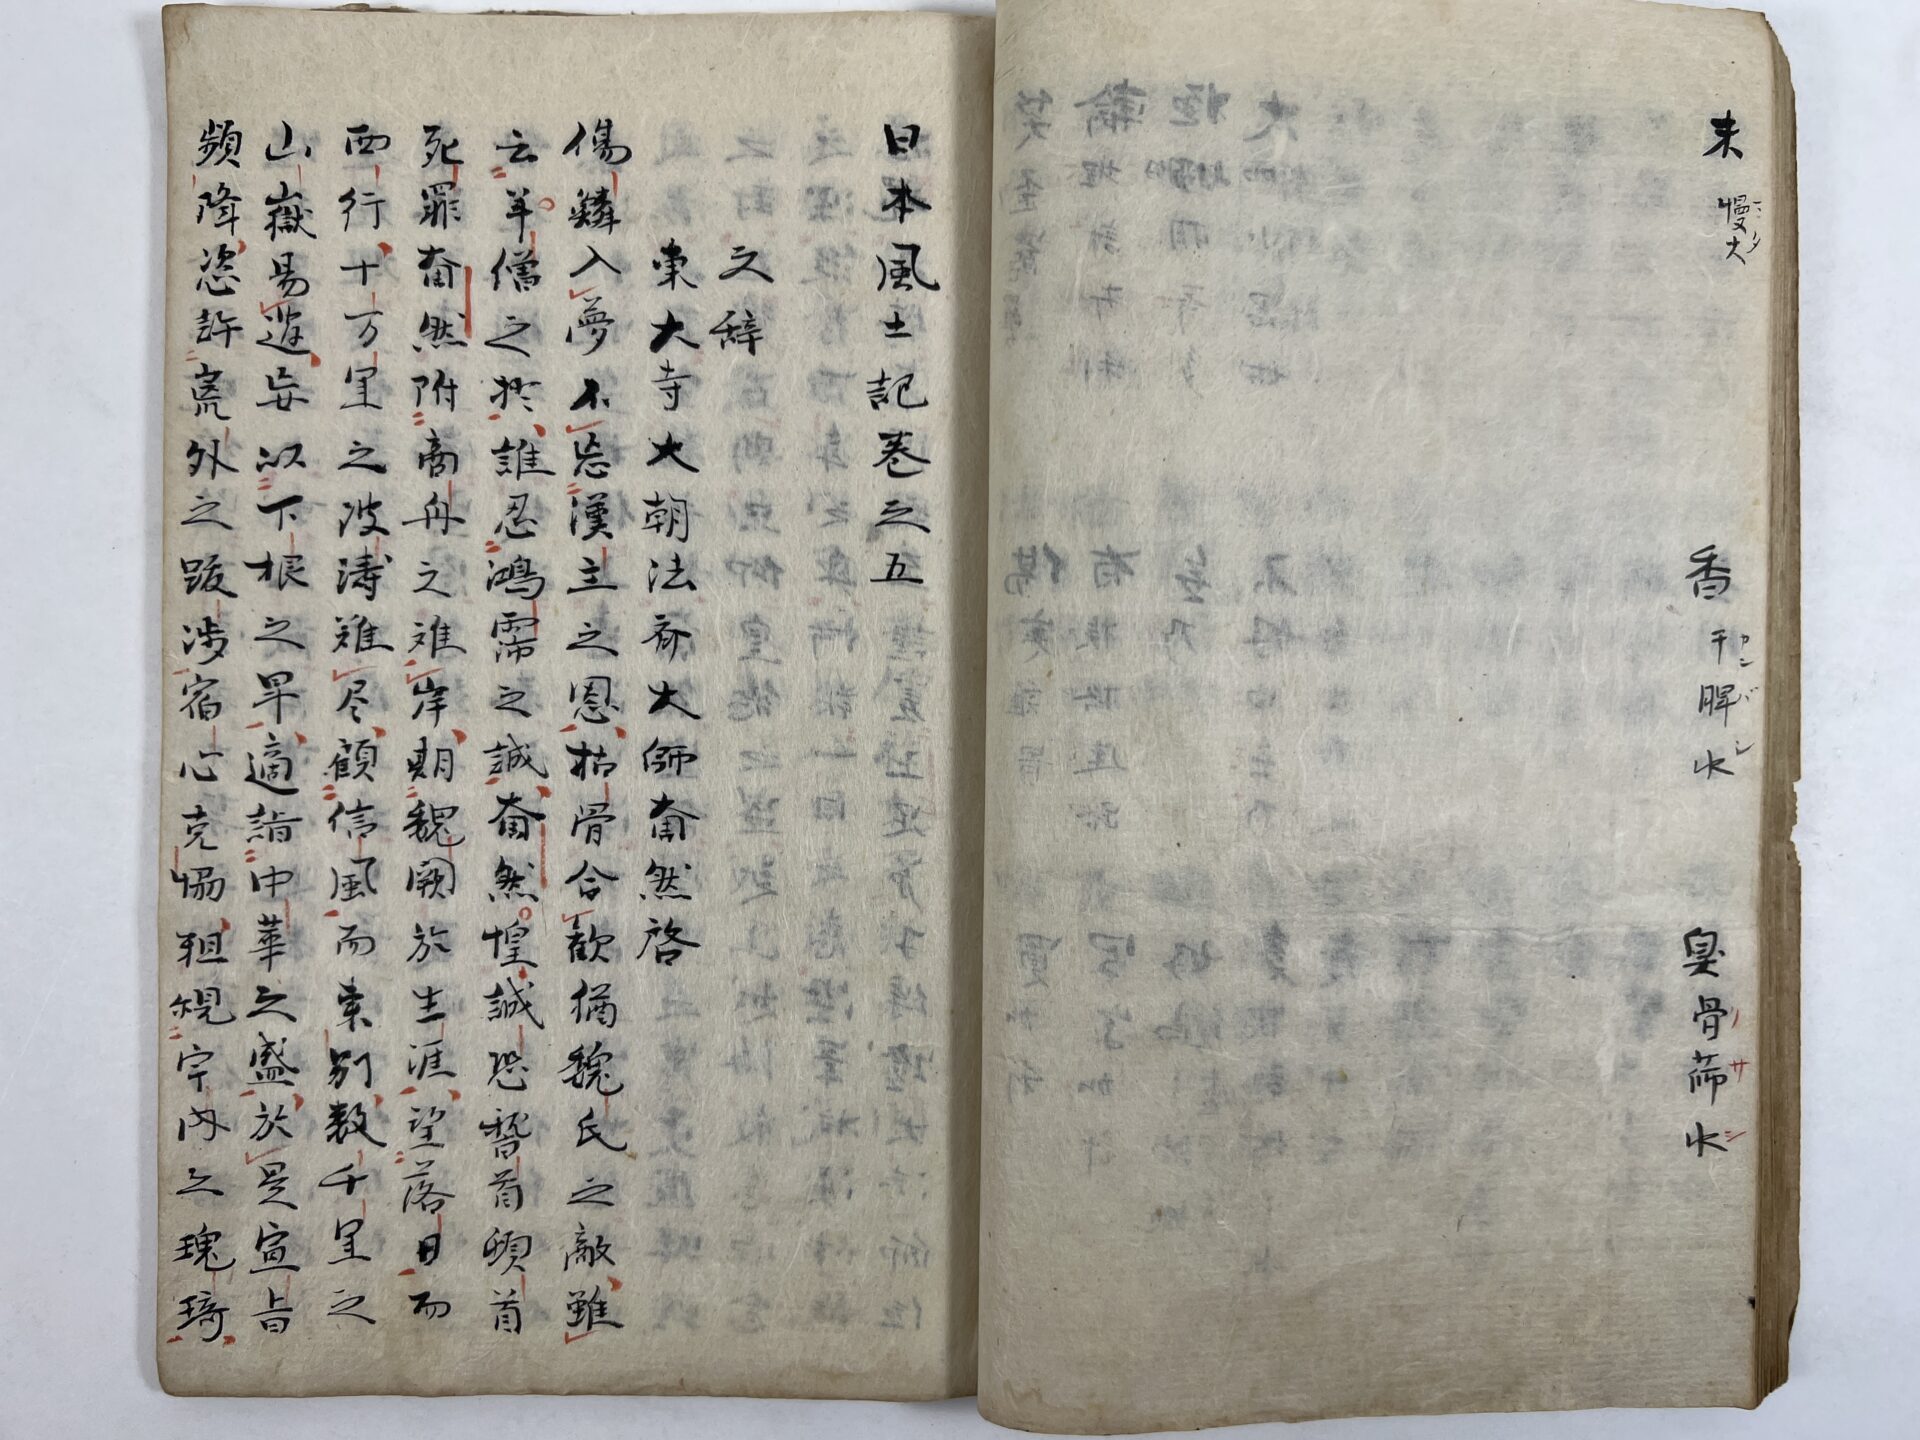 未 慢大
香 干脾水
カンバシ
臭骨篩水
ノサシ
日本風土記巻之五
文辞
東大寺大朝法齊大師奝然啓
傷鱗入夢不忘漢主之恩枯骨合歓猶魏氏之敵雖
云羊僧之拙誰忍鴻霈之誠奝然惶誠恐稽首頓首
死罪奝然附商舟之难岸期魏闕於生涯望落日而
西行十万里之波涛难尽顧信風而東別数千里之
山嶽易過妄以下根之卑適詣中華之盛於是宣旨
頻降恣許荒外之跋涉宿心克協粗覌宇内之瑰琦